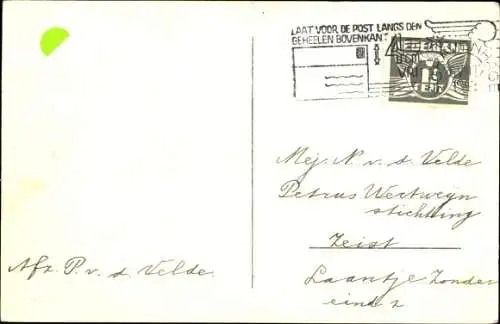 LAAT VOOR DE POST LANGS DEN
GEHEELEN BOVENKANT
CENT
Mej. N. v. d. Velde
Petrus Wertweyn
stichting
Zeist
Laantje Zonder
eind 2
Afz. P. v. d. Velde.